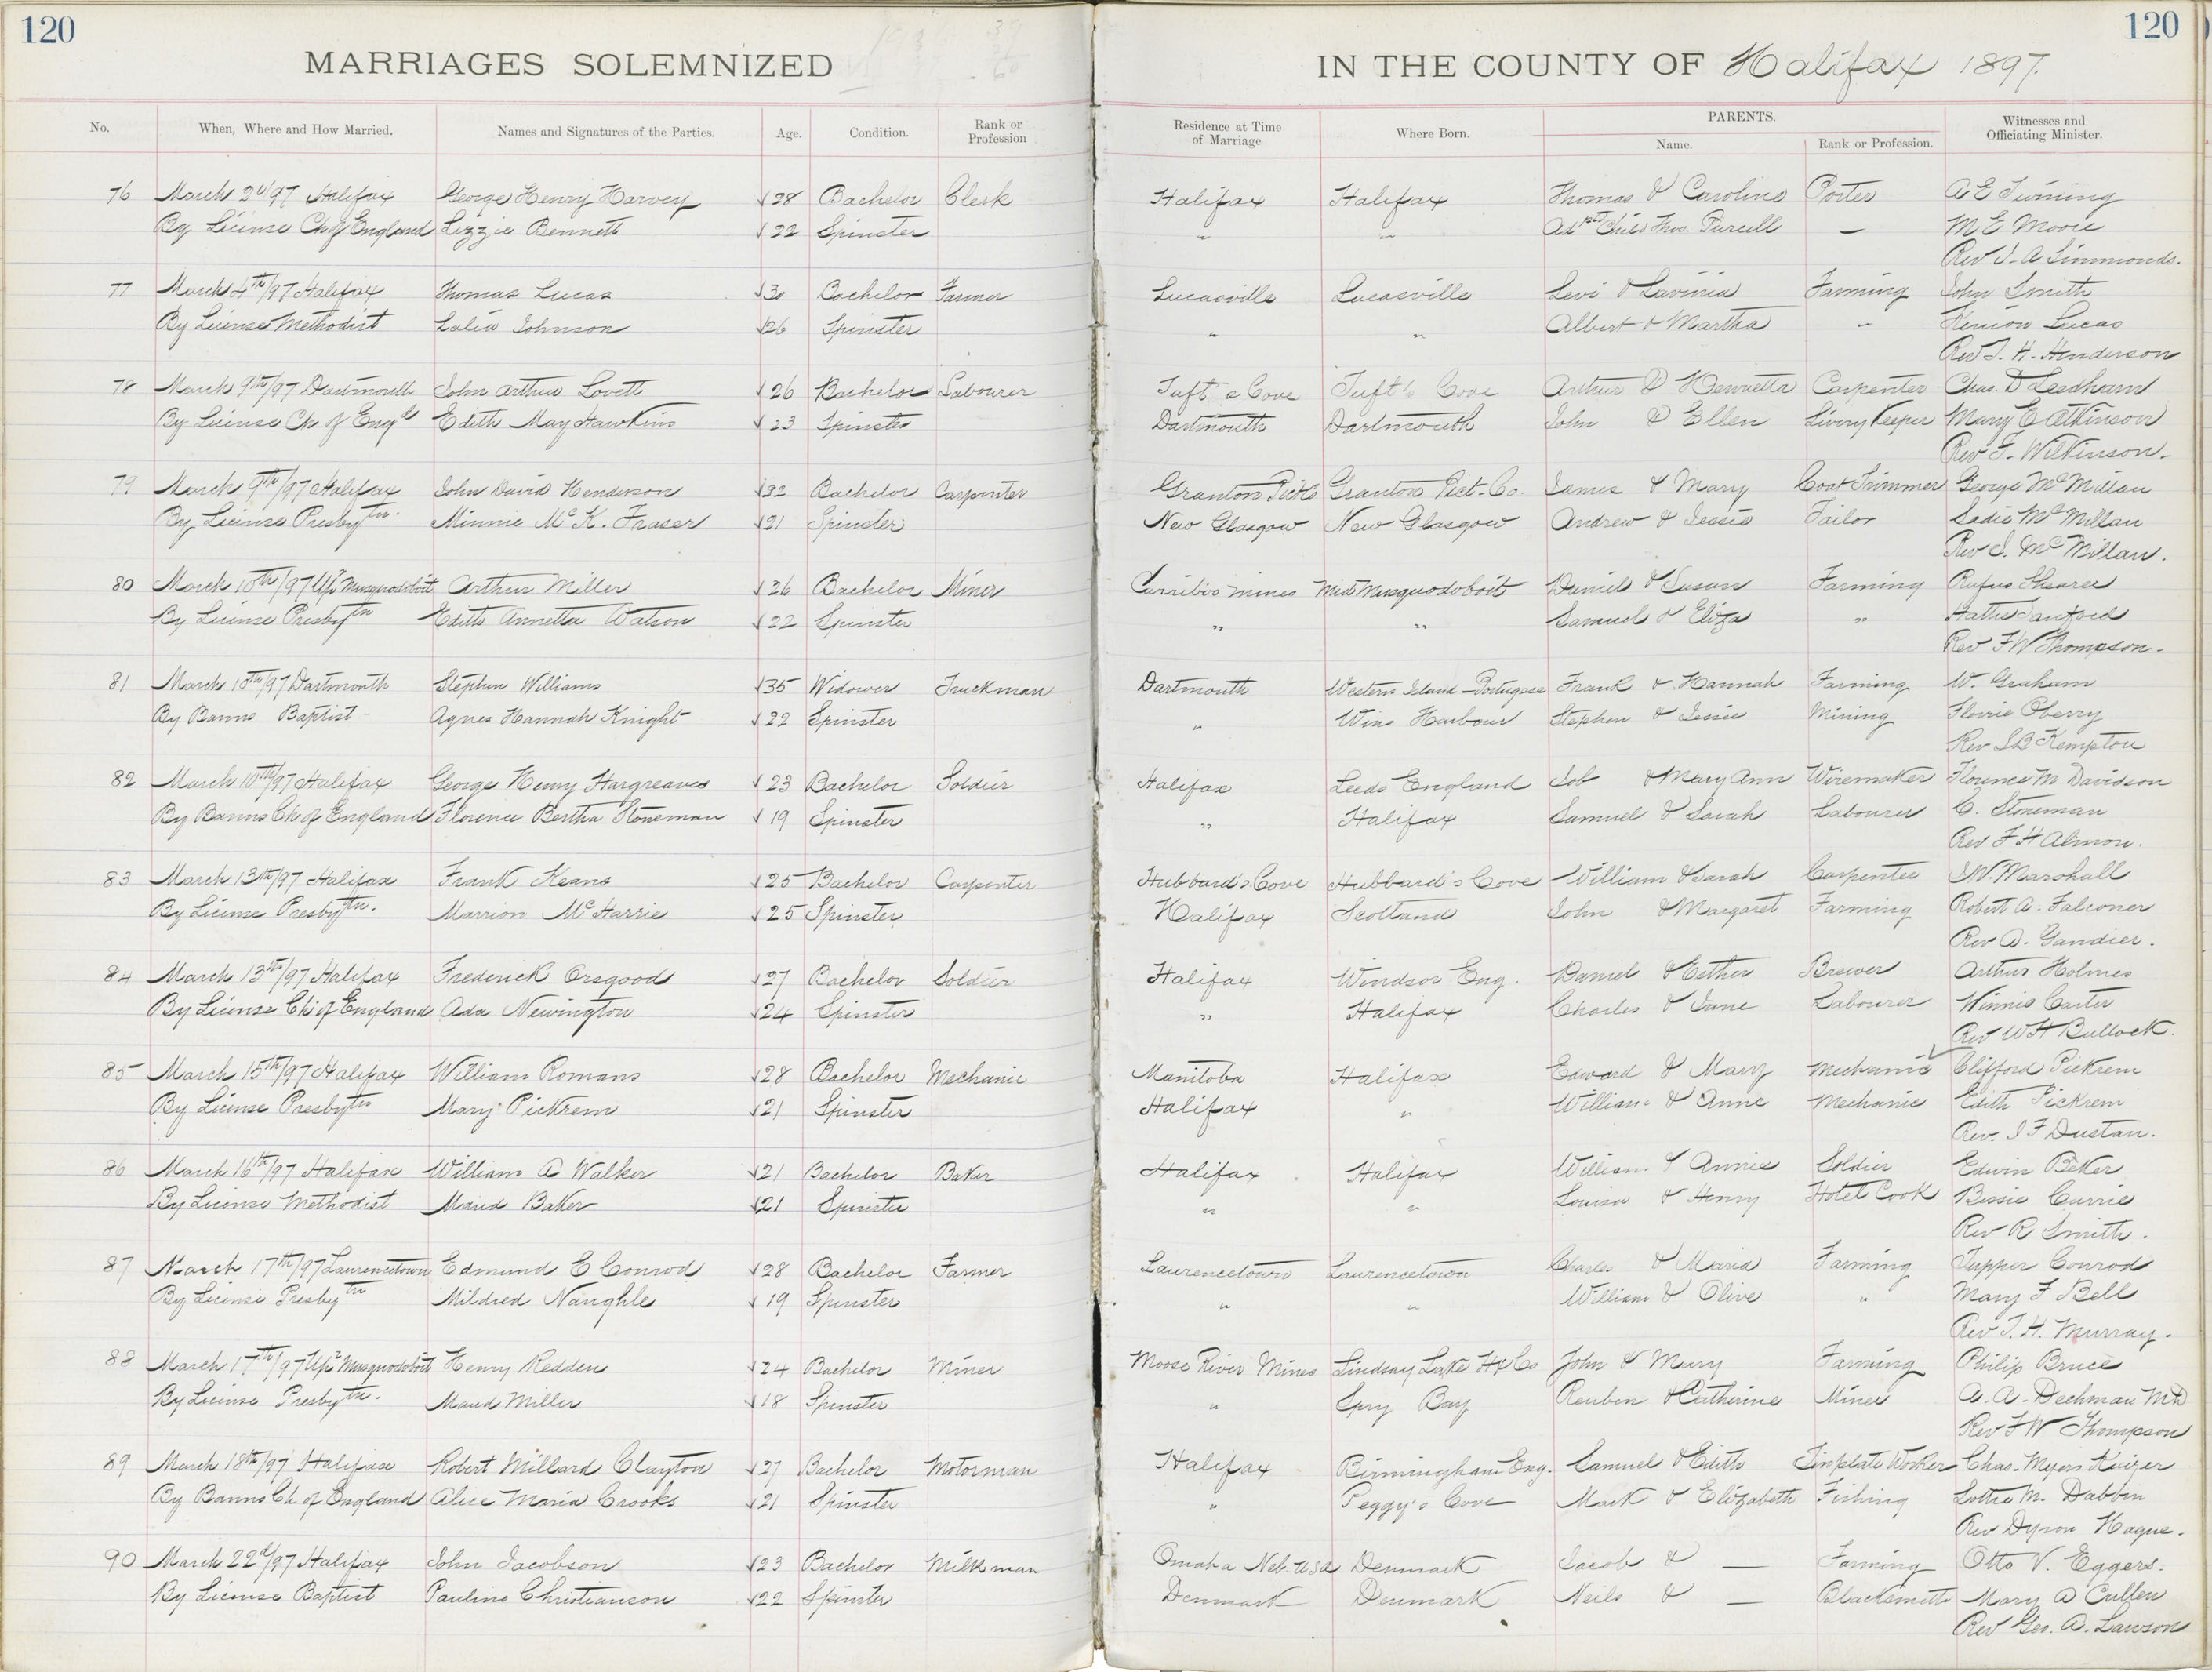 120
120
MARRIAGES SOLEMNIZED
IN THE COUNTY OF Halifax 1897.
No. When, Where and How Married. Names and Signatures of the Parties. Age. Condition. Rank or Profession Residence at Time of Marriage Where Born. PARENTS. Name. Rank or Profession. Witnesses and Officiating Minister.
76 March 2d/97 Halifax George Henry Harvey 28 Bachelor Clerk Halifax Halifax Thomas & Caroline Porter A E Twining
By License Ch of England Lizzie Bennett 22 Spinster " " Adpted Child Thos. Purcell — M E Moore
Rev J. A Simmonds.
77 March 4th/97 Halifax Thomas Lucas 30 Bachelor Farmer Lucasville Lucasville Levi & Lavinia Farming John Smith
By License Methodist Lalia Johnson 26 Spinster " " Albert & Martha " Lucas
Rev T. H. Henderson
78 March 9th/97 Dartmouth John Arthur Lovett 26 Bachelor Labourer Tuft's Cove Tuft's Cove Arthur & Henrietta Carpenter Chas. D Leedham
By License Ch of Engd Edith May Hawkins 23 Spinster Dartmouth Dartmouth John & Ellen Livery Keeper Mary E Atkinson
Rev F. Wilkinson.
79 March 9th/97 Halifax John David Henderson 32 Bachelor Carpenter Granton Pict Co Granton Pict. Co. James & Mary Coat Trimmer George McMillan
By License Presbytn. Minnie McK. Fraser 21 Spinster New Glasgow New Glasgow Andrew & Jessie Tailor Sadie McMillan
Rev J. McMillan.
80 March 10th/97 Upr Musquodoboit Arthur Miller 26 Bachelor Miner Carriboo Mines Mid Musquodoboit Daniel & Susan Farming Rufus Shearer
By License Presbytn Edith Annetta Watson 22 Spinster " " Samuel & Eliza " Hattie Sanford
Rev F W Thompson.
81 March 10th/97 Dartmouth Stephen Williams 35 Widower Truckman Dartmouth Western Island - Portugese Frank & Hannah Farming W. Graham
By Banns Baptist Agnes Hannah Knight 22 Spinster " Wine Harbour Stephen & Jessie Mining Florrie Oberry
Rev S B Kempton
82 March 10th/97 Halifax George Henry Hargreaves 23 Bachelor Soldier Halifax Leeds England Job & Mary Ann Wiremaker Florence M Davidson
By Banns Ch of England Florence Bertha Stoneman 19 Spinster " Halifax Samuel & Sarah Labourer C. Stoneman
Rev F H Almon.
83 March 13th/97 Halifax Frank Keans 25 Bachelor Carpenter Hubbard's Cove Hubbard's Cove William & Sarah Carpenter J.W. Marshall
By License Presbytn. Marrion McHarrie 25 Spinster Halifax Scotland John & Margaret Farming Robert A. Falconer
Rev A. Gandier.
84 March 13th/97 Halifax Frederick Orsgood 27 Bachelor Soldier Halifax Windsor Eng. Daniel & Esther Brewer Arthur Holmes
By License Ch of England Ada Newington 24 Spinster " Halifax Charles & Jane Labourer Winnie Carter
Rev W H Bullock.
85 March 15th/97 Halifax William Romans 28 Bachelor Mechanic Manitoba Halifax Edward & Mary Mechanic Clifford Pickrem
By License Presbytn Mary Pickrem 21 Spinster Halifax " William & Anne Mechanic Edith Pickrem
Rev. J F Dustan.
86 March 16th/97 Halifax William A Walker 21 Bachelor Baker Halifax Halifax William & Annie Soldier Edwin Beker
By License Methodist Maud Baker 21 Spinster " " Louisa & Henry Hotel Cook Bessie Currie
Rev R Smith.
87 March 17th/97 Laurencetown Edmund E Conrod 28 Bachelor Farmer Laurencetown Laurencetown Charles & Maria Farming Tupper Conrod
By License Presbytn Mildred Naughle 19 Spinster " " William & Olive " Mary F Bell
Rev T. H. Murray.
88 March 17th/97 Upr Musquodoboit Henry Redden 24 Bachelor Miner Moose River Mines Lindsay Lake Hx Co John & Mary Farming Philip Bruce
By License Presbytn. Maud Miller 18 Spinster " Spry Bay Reuben & Catherine Miner A. A. Dechman MD
Rev F W Thompson
89 March 18th/97 Halifax Robert Millard Clayton 27 Bachelor Motorman Halifax Birmingham Eng. Samuel & Edith Tinplate Worker Chas. Myers Kuizer
By Banns Ch of England Alice Maria Crooks 21 Spinster " Peggy's Cove Mark & Elizabeth Fishing Lottie M. Dabbin
Rev Dyson Hague.
90 March 22d/97 Halifax John Jacobson 23 Bachelor Milkman Omaha Neb. USA Denmark Jacob & — Farming Otto V. Eggers.
By License Baptist Pauline Christianson 22 Spinster Denmark Denmark Neils & — Blacksmith Mary A Cullen
Rev Geo. A. Lawson